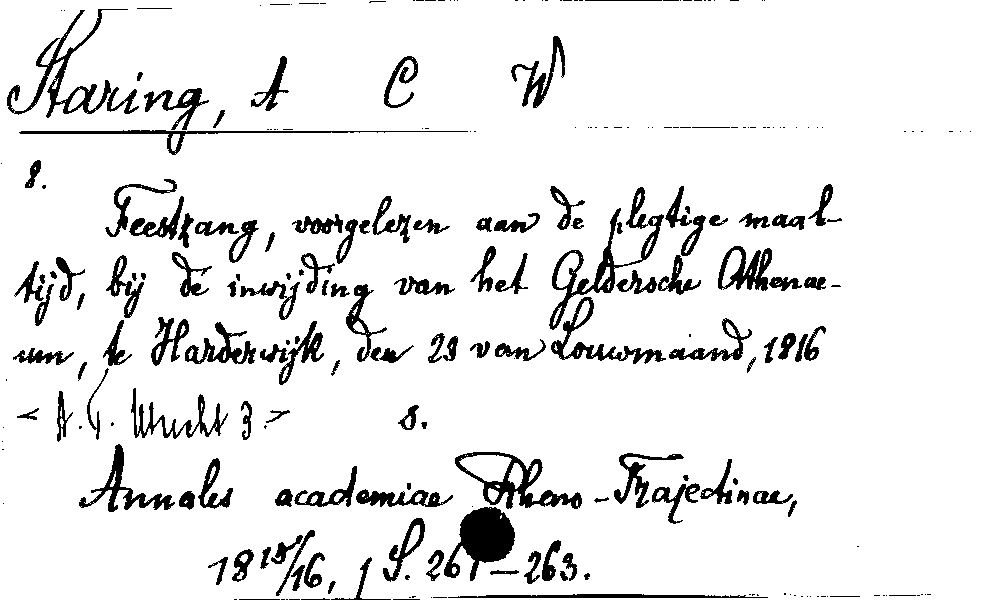 Staring, A C W
8.
Feestzang, voorgelezen aan de plegtige maal-
tijd, bij de inwijding van het Geldersche Athenae-
um, te Harderwijk, den 23 van Louwmaand, 1816
< A. T. Utrecht 3 > 8.
Annales academiae Rheno-Trajectinae,
1815/16, S. 261-263.